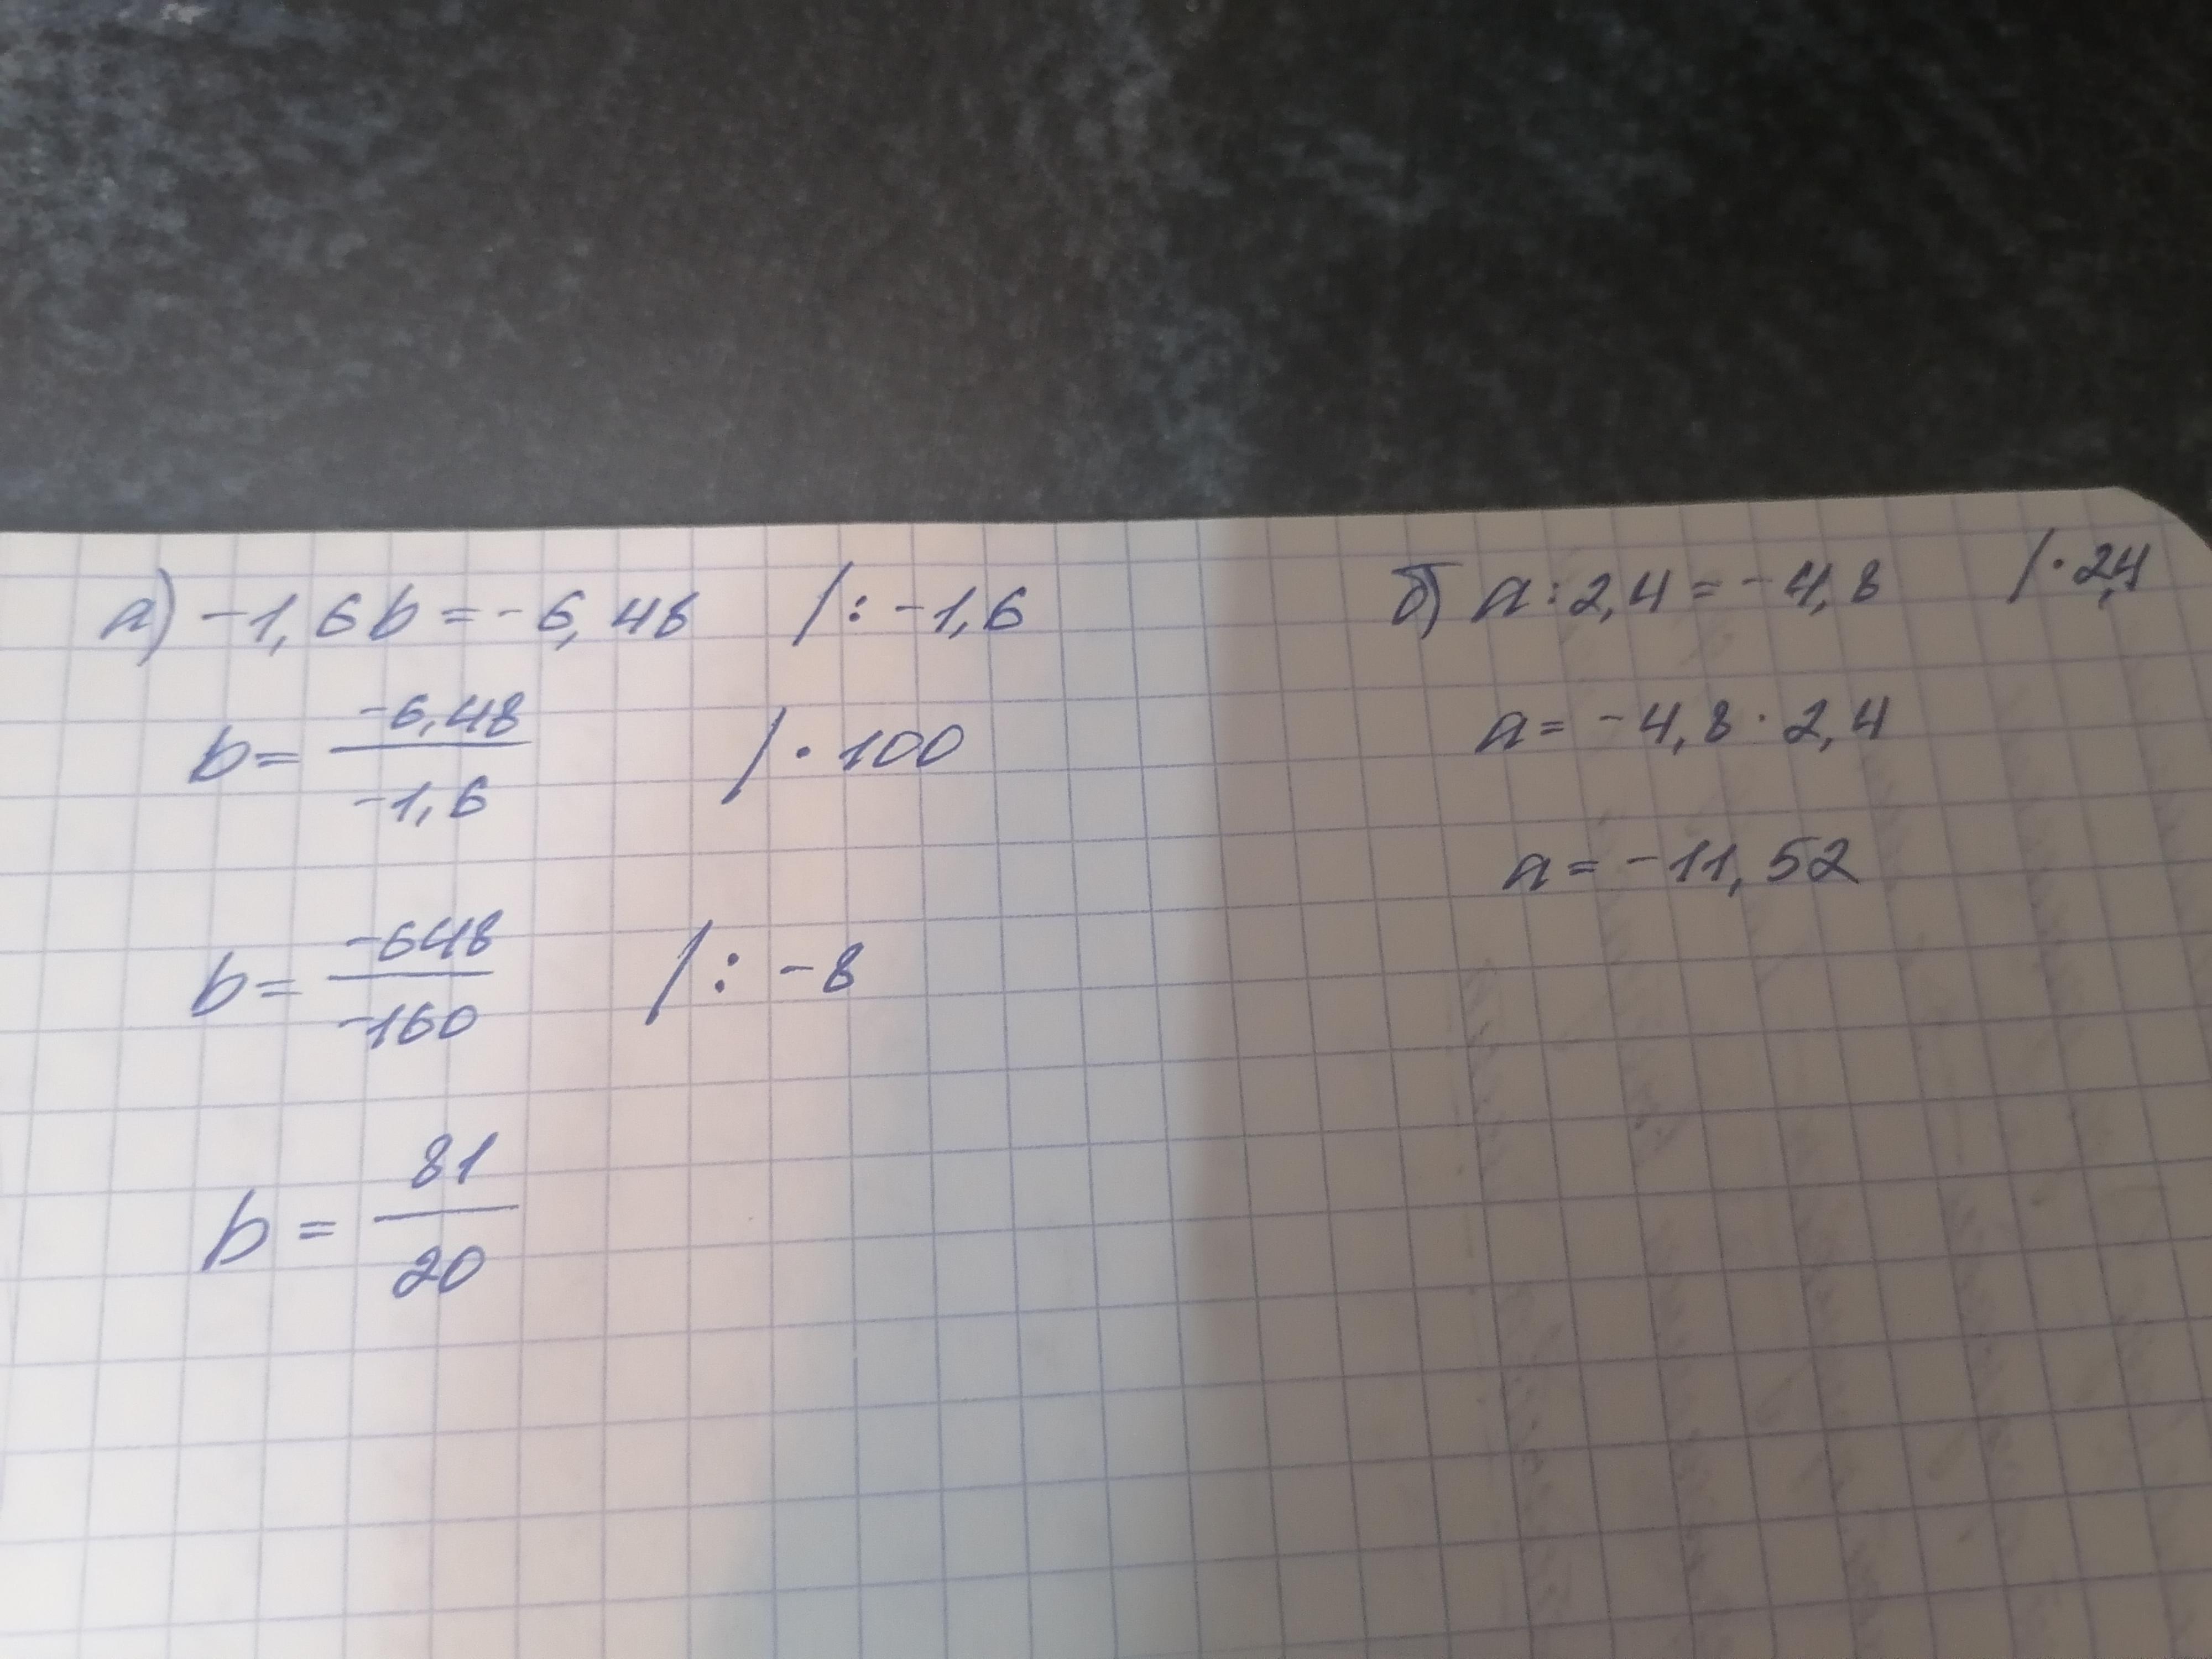 а) -1,6b = -6,48 /: -1,6
b = -6,48 / -1,6 /· 100
b = -648 / -160 /: -8
b = 81 / 20
б) a : 2,4 = -4,8 /· 2,4
a = -4,8 · 2,4
a = -11,52